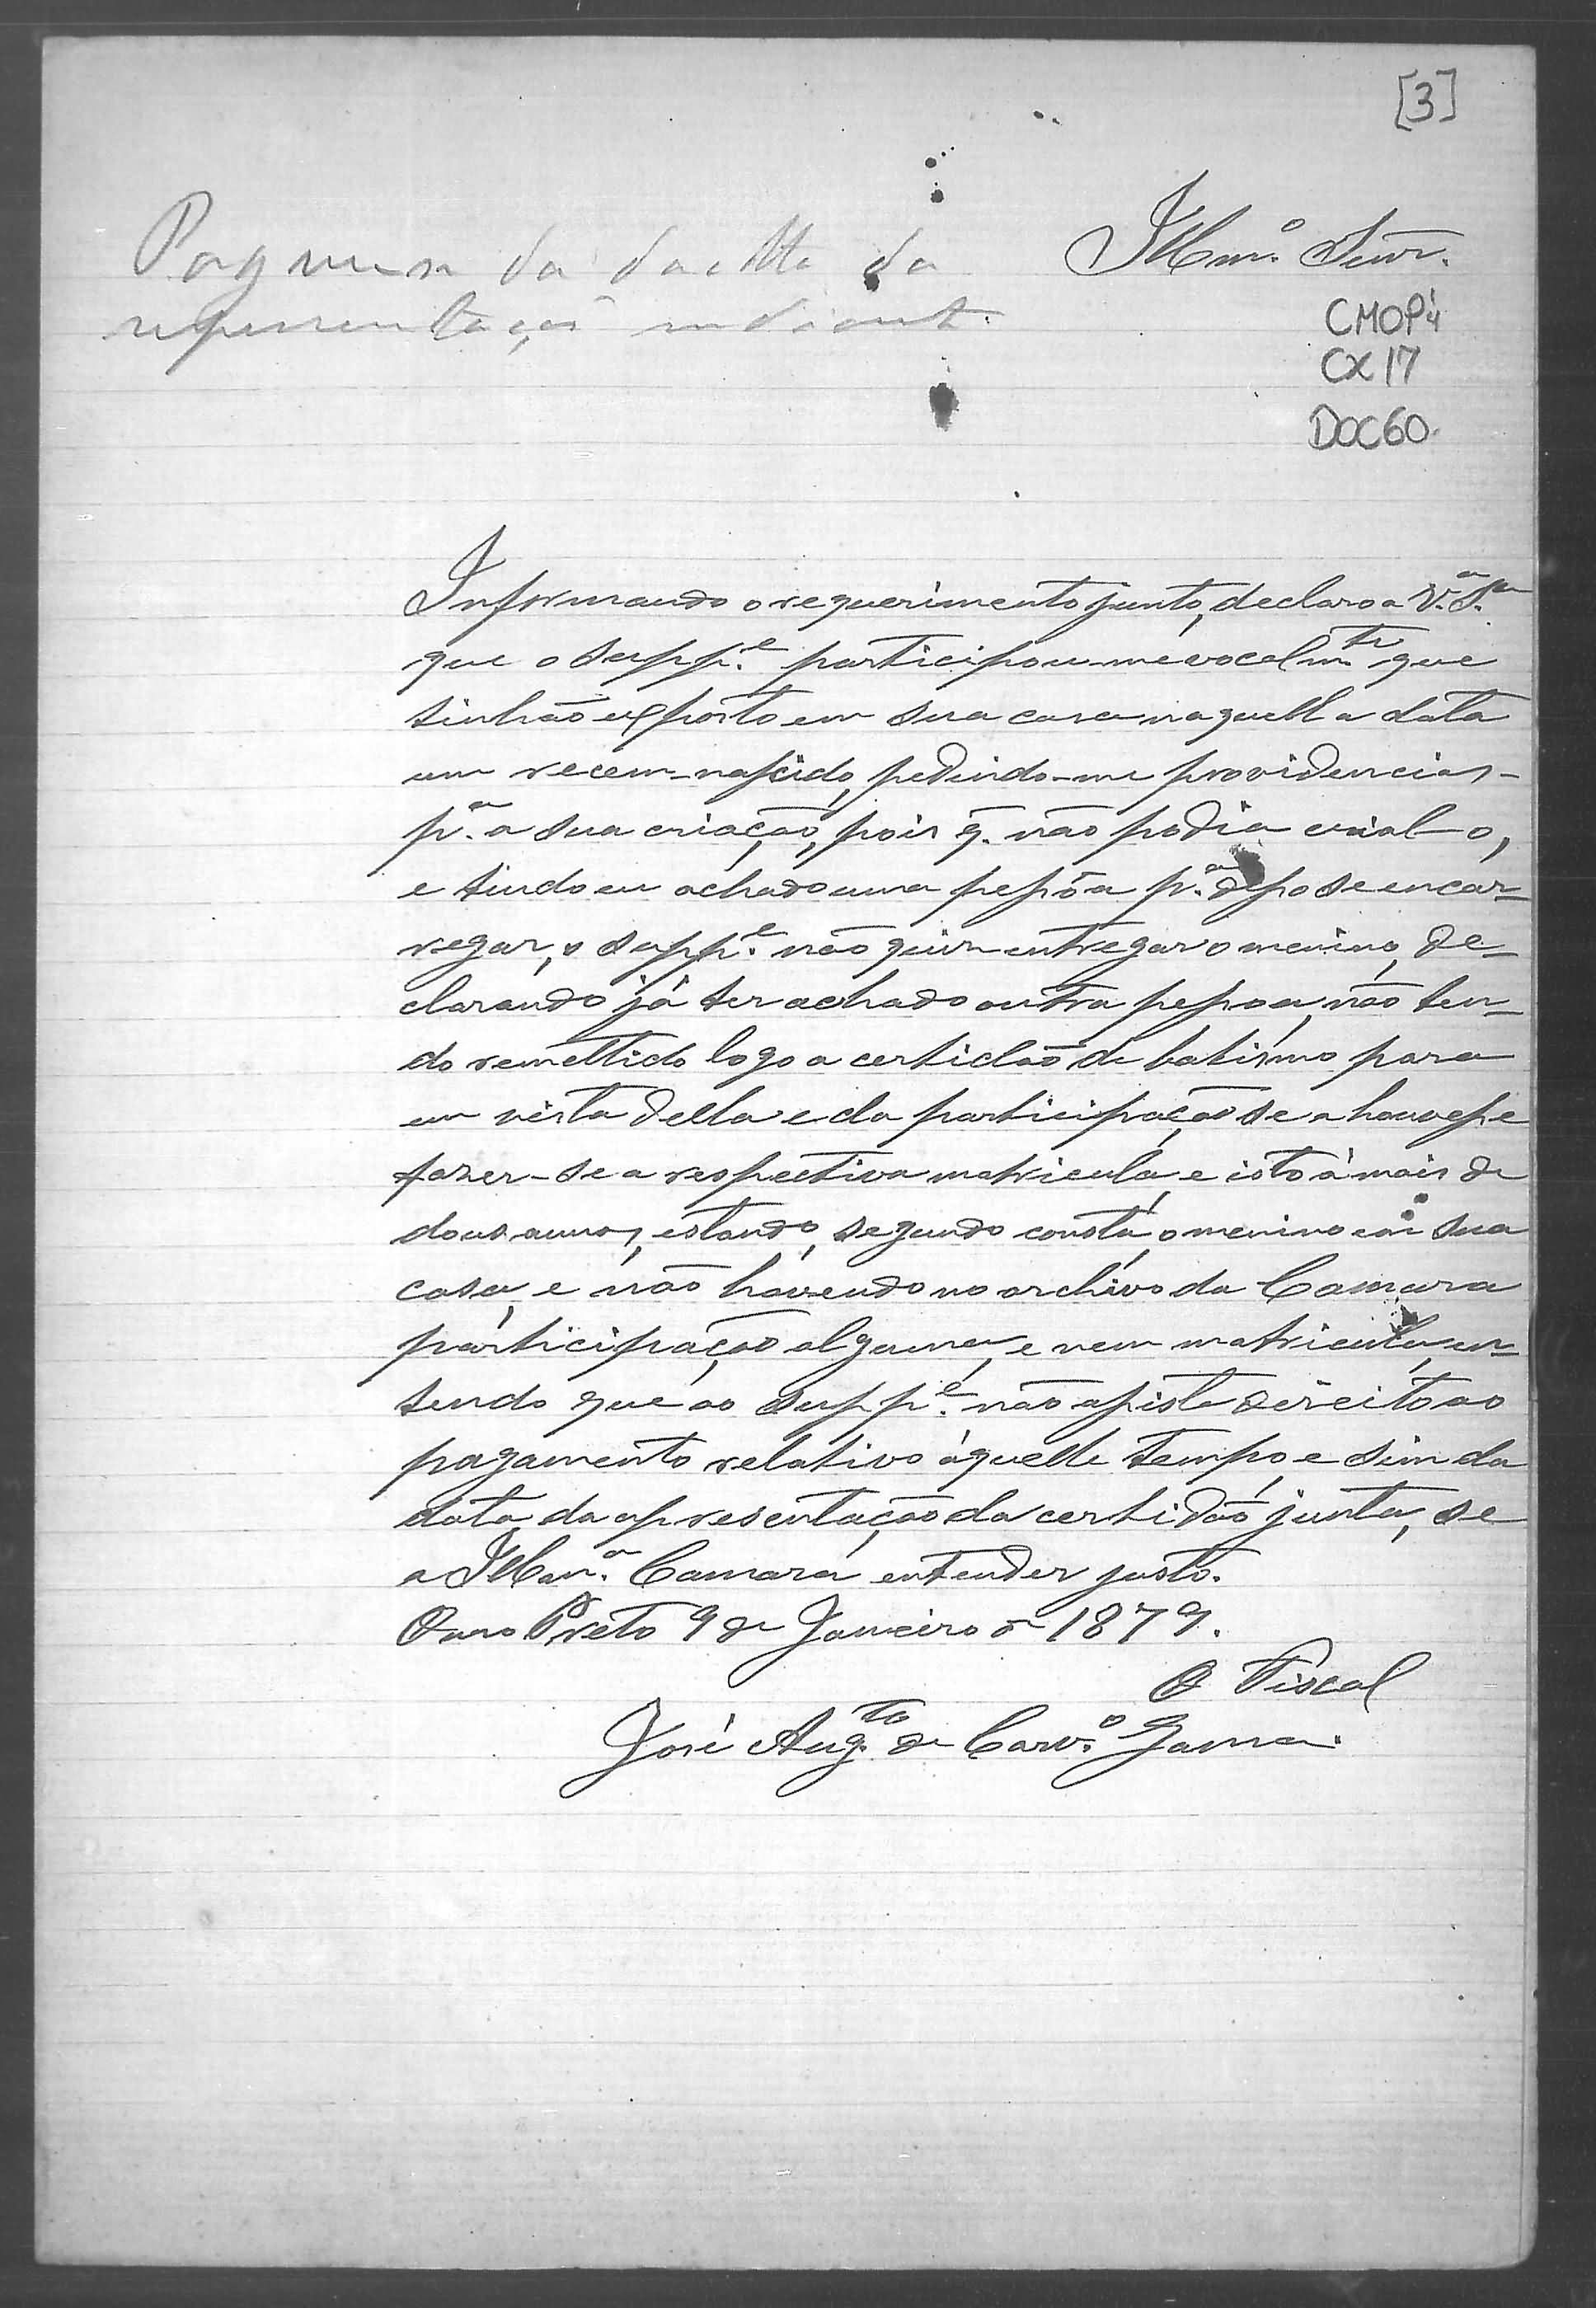 [3]
Pague-se da data da
representação em diante.
Illmo. Senr.
CMOP
CX 17
DOC 60.
Informando o requerimento junto, declaro a V.ª S.ª
que o Supp.e participou-me vocalm.te que
tinhão exposto em sua casa naquella data
um recem-nascido, pedindo-me providencias
p.ª a sua criação, pois q. não podia crial-o,
e tendo eu achado uma pessôa p.ª disso se encar-
regar, o Supp.e não quiz entregar o menino, de-
clarando já ter achado outra pessoa, não ten-
do remettido logo a certidão de batismo para
em vista della e da participação se a houvesse
fazer-se a respectiva matricula, e isto á mais de
dous annos, estando, segundo consta, o menino em sua
casa, e não havendo no archivo da Camara
participação alguma, e nem matricula, en-
tendo que ao Supp.e não assiste direito ao
pagamento relativo áquelle tempo e sim da
data da apresentação da certidão junta, se
a Illma. Camara entender justo.
Ouro Preto 9 de Janeiro de 1879.
O Fiscal
José Aug.to de Carv.o Gama.